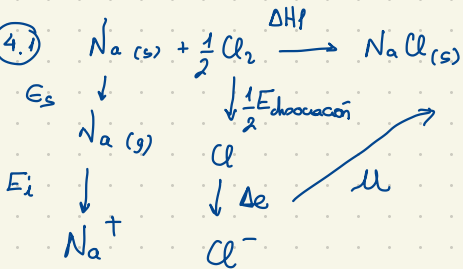 4.1 Na (s) + 1/2 Cl₂ ΔHf NaCl (s)
Es 1/2 Edisociación
Na (g) Cl
Ei Δe U
Na⁺ Cl⁻